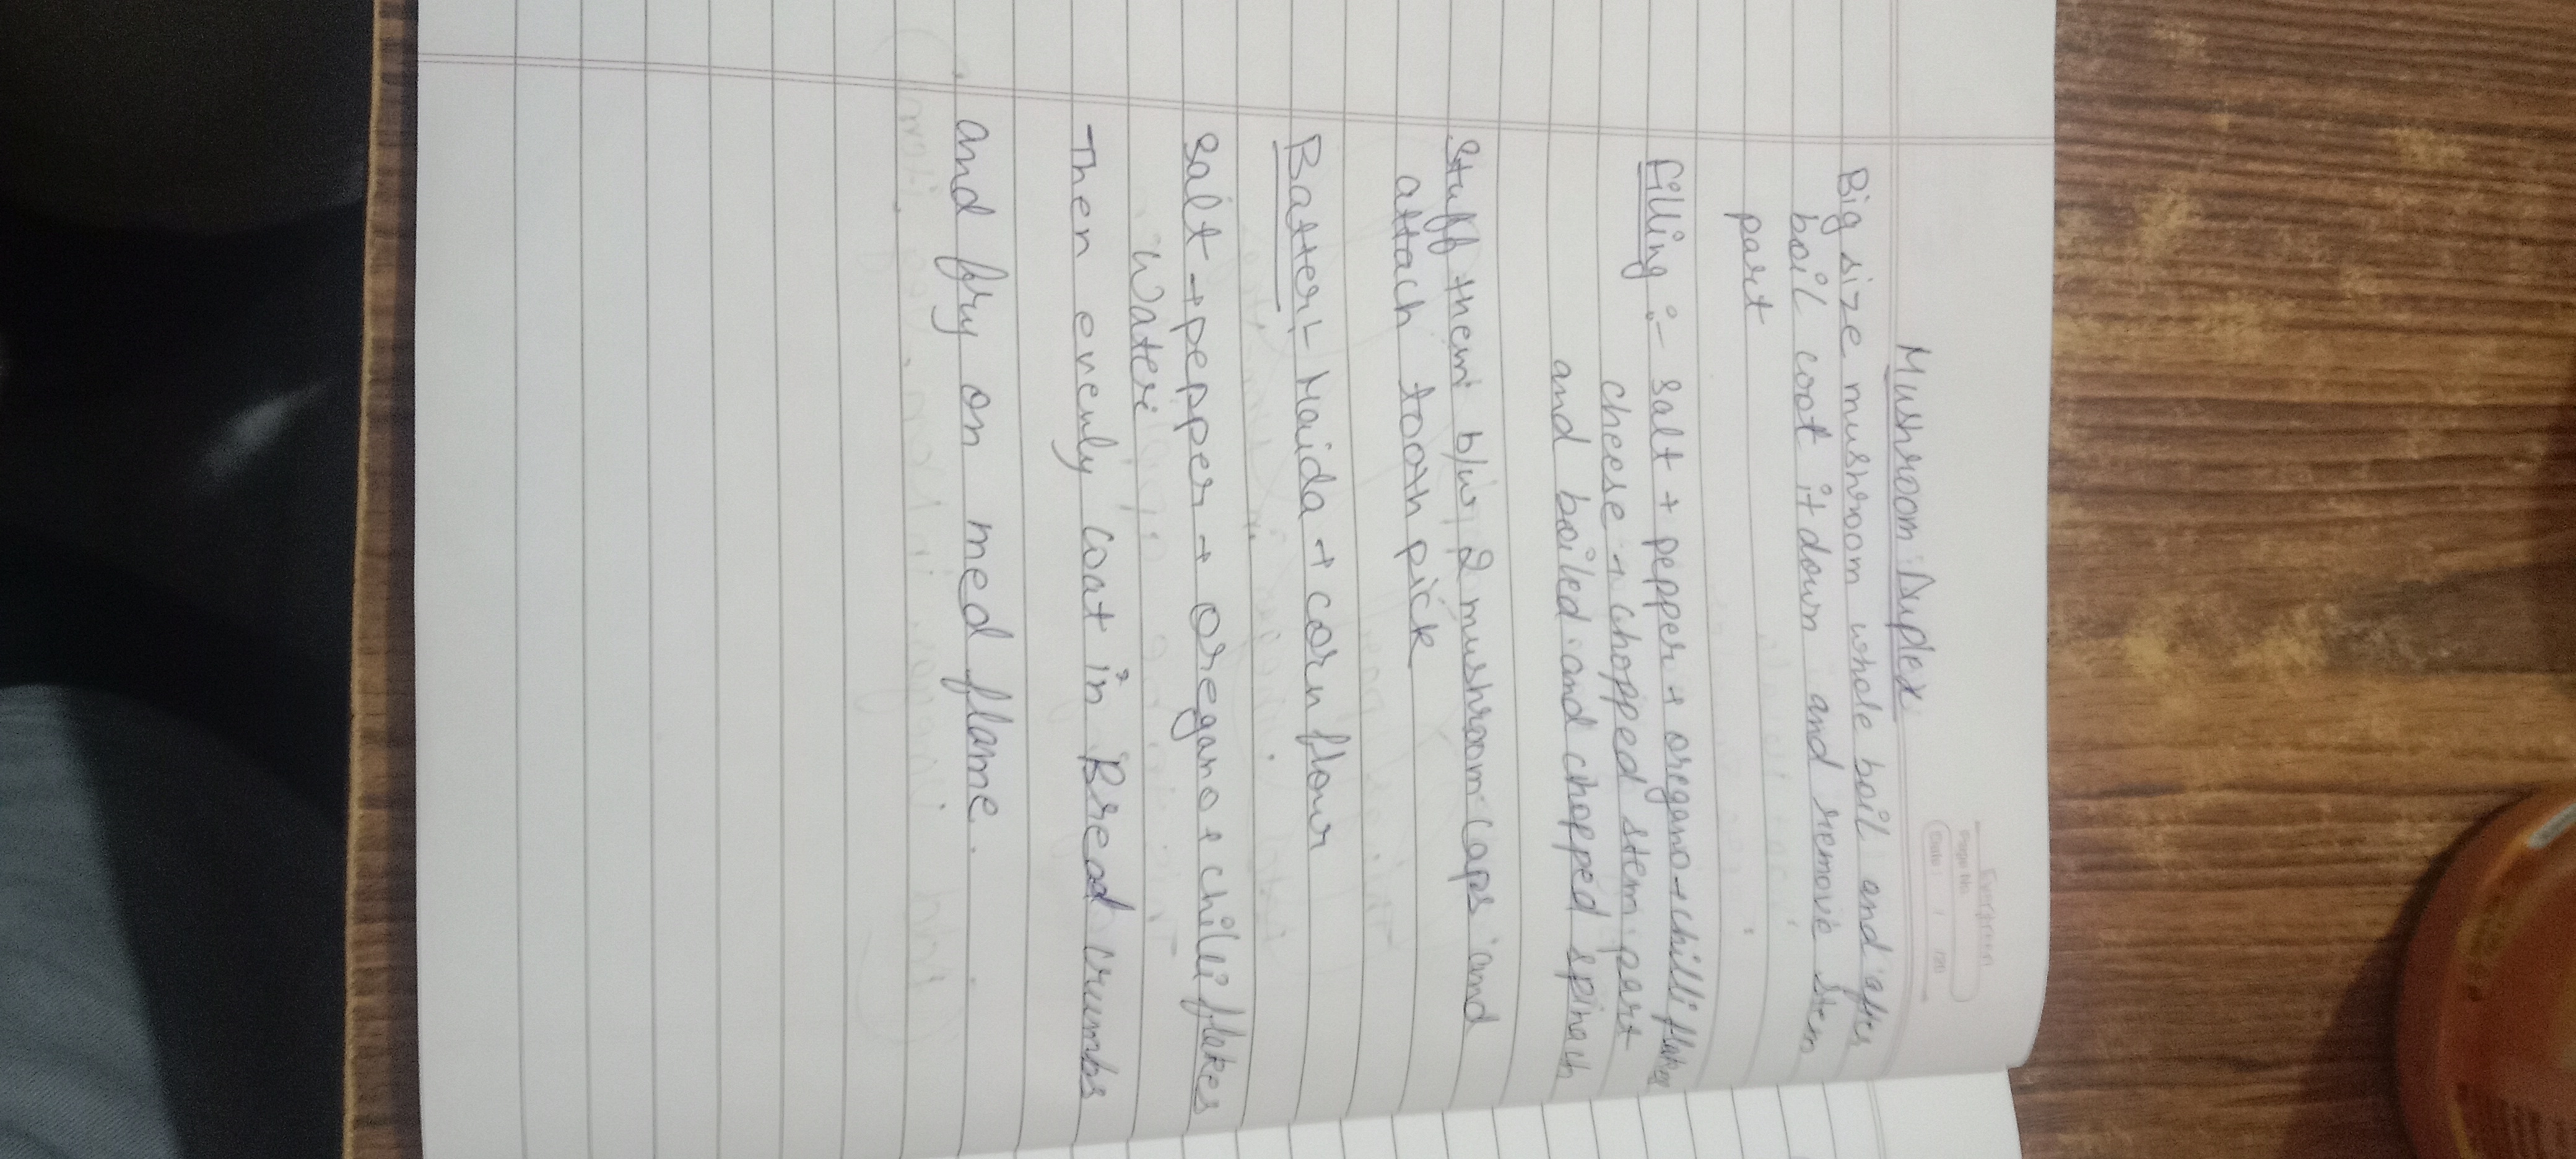 Evergreen
Page No.
Date : / /20
Mushroom Duplex
Big size mushroom whole boil and after
boil coot it down and remove stem
part
filling :- salt + pepper + oregano + chilli flakes
cheese + chopped stem part
and boiled and chopped spinach
Stuff them b/w 2 mushroom caps and
attach tooth pick
Batter:- Maida + corn flour
Salt + pepper + oregano + chilli flakes
Water
Then evenly coat in Bread crumbs
and fry on med flame.